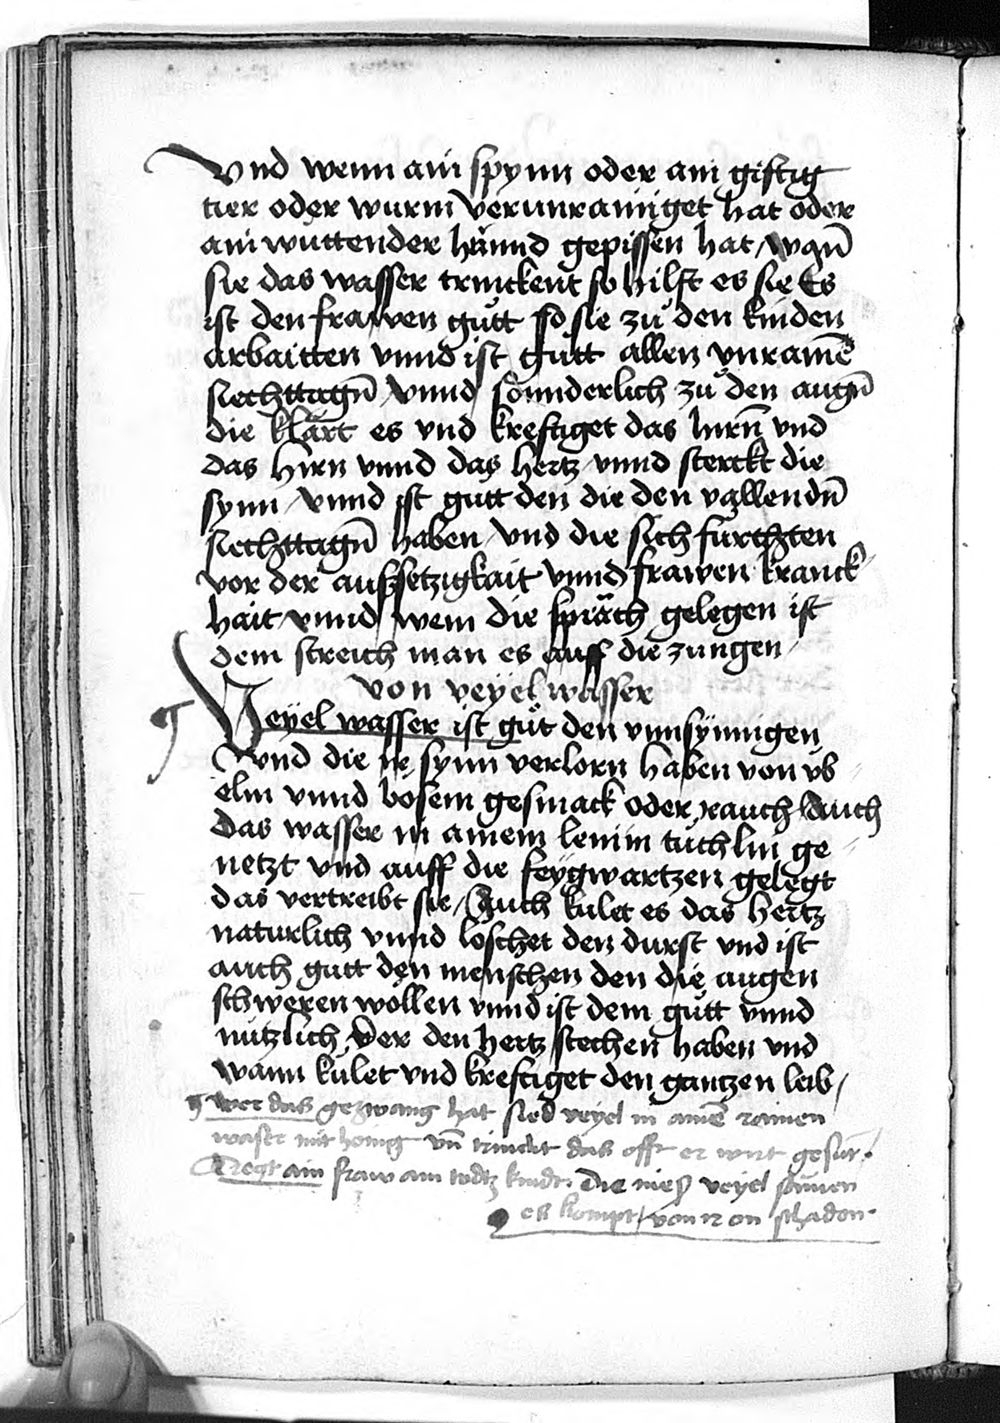 Vnd wenn ain spynn oder ain gifftig
tier oder wurm verunrainiget hat oder
ain wüttender hünnd gepissen hat / wan̄
sie das wasser trinckent so hilft es sie Es
ist den frawen gůtt so sie zů den kinden
arbaitten vnnd ist gutt allen vnrainē
siechttagn̄ / vnnd sönnderlich zů den augn̄
die klärt es vnd kreftiget das hirn̄ vnd
das hirn vnnd das hertz / vnnd sterckt die
synn / vnnd ist gutt den die den vallendn̄
siechttagn̄ haben / vnd die sich fürchten
vor der aussetzigkait vnnd frawen kranck
hait / vnnd / wem die spräch gelegen ist
dem streich man es auff die zungen /
von veyel wasser
Veyel wasser ist gůt den vnnsynnigen
Vnnd die ir synn verlorn haben von vb
elm vnnd bösem gesmack oder rauch / Auch
das wasser in ainem leinin tüchlin ge
netzt vnd auff die feygwartzen gelegt
das vertreibt sie / Auch kület es das hertz
naturlich vnnd löschet den durst vnd ist
auch gutt den menschen den die augen
schweren wöllen vnnd ist dem gůtt vnnd
nützlich / Der den hertz stechen haben vnd
wann kület vnd kreftiget den gantzen leib /
wer das gezwang hat sied veyel in ainē rainen
waser mit honig vn̄ trinckt das offt er wirt gesunt.
Tregt ain fraw ain todtz kindt. Die nies veyel samen
es kompt / von ir on schaden.